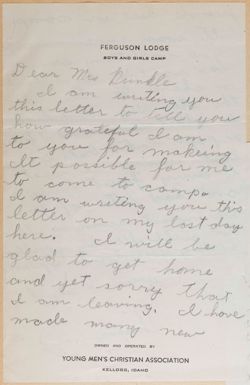 FERGUSON LODGE
BOYS AND GIRLS CAMP
Dear Mrs Runkle
I am writing you
this letter to tell you
how grateful I am
to you for makeing
it possible for me
to come to camp.
I am writing you this
letter on my last day
here. I will be
glad to get home
and yet sorry that
I am leaving. I have
made many new
OWNED AND OPERATED BY
YOUNG MEN'S CHRISTIAN ASSOCIATION
KELLOGG, IDAHO